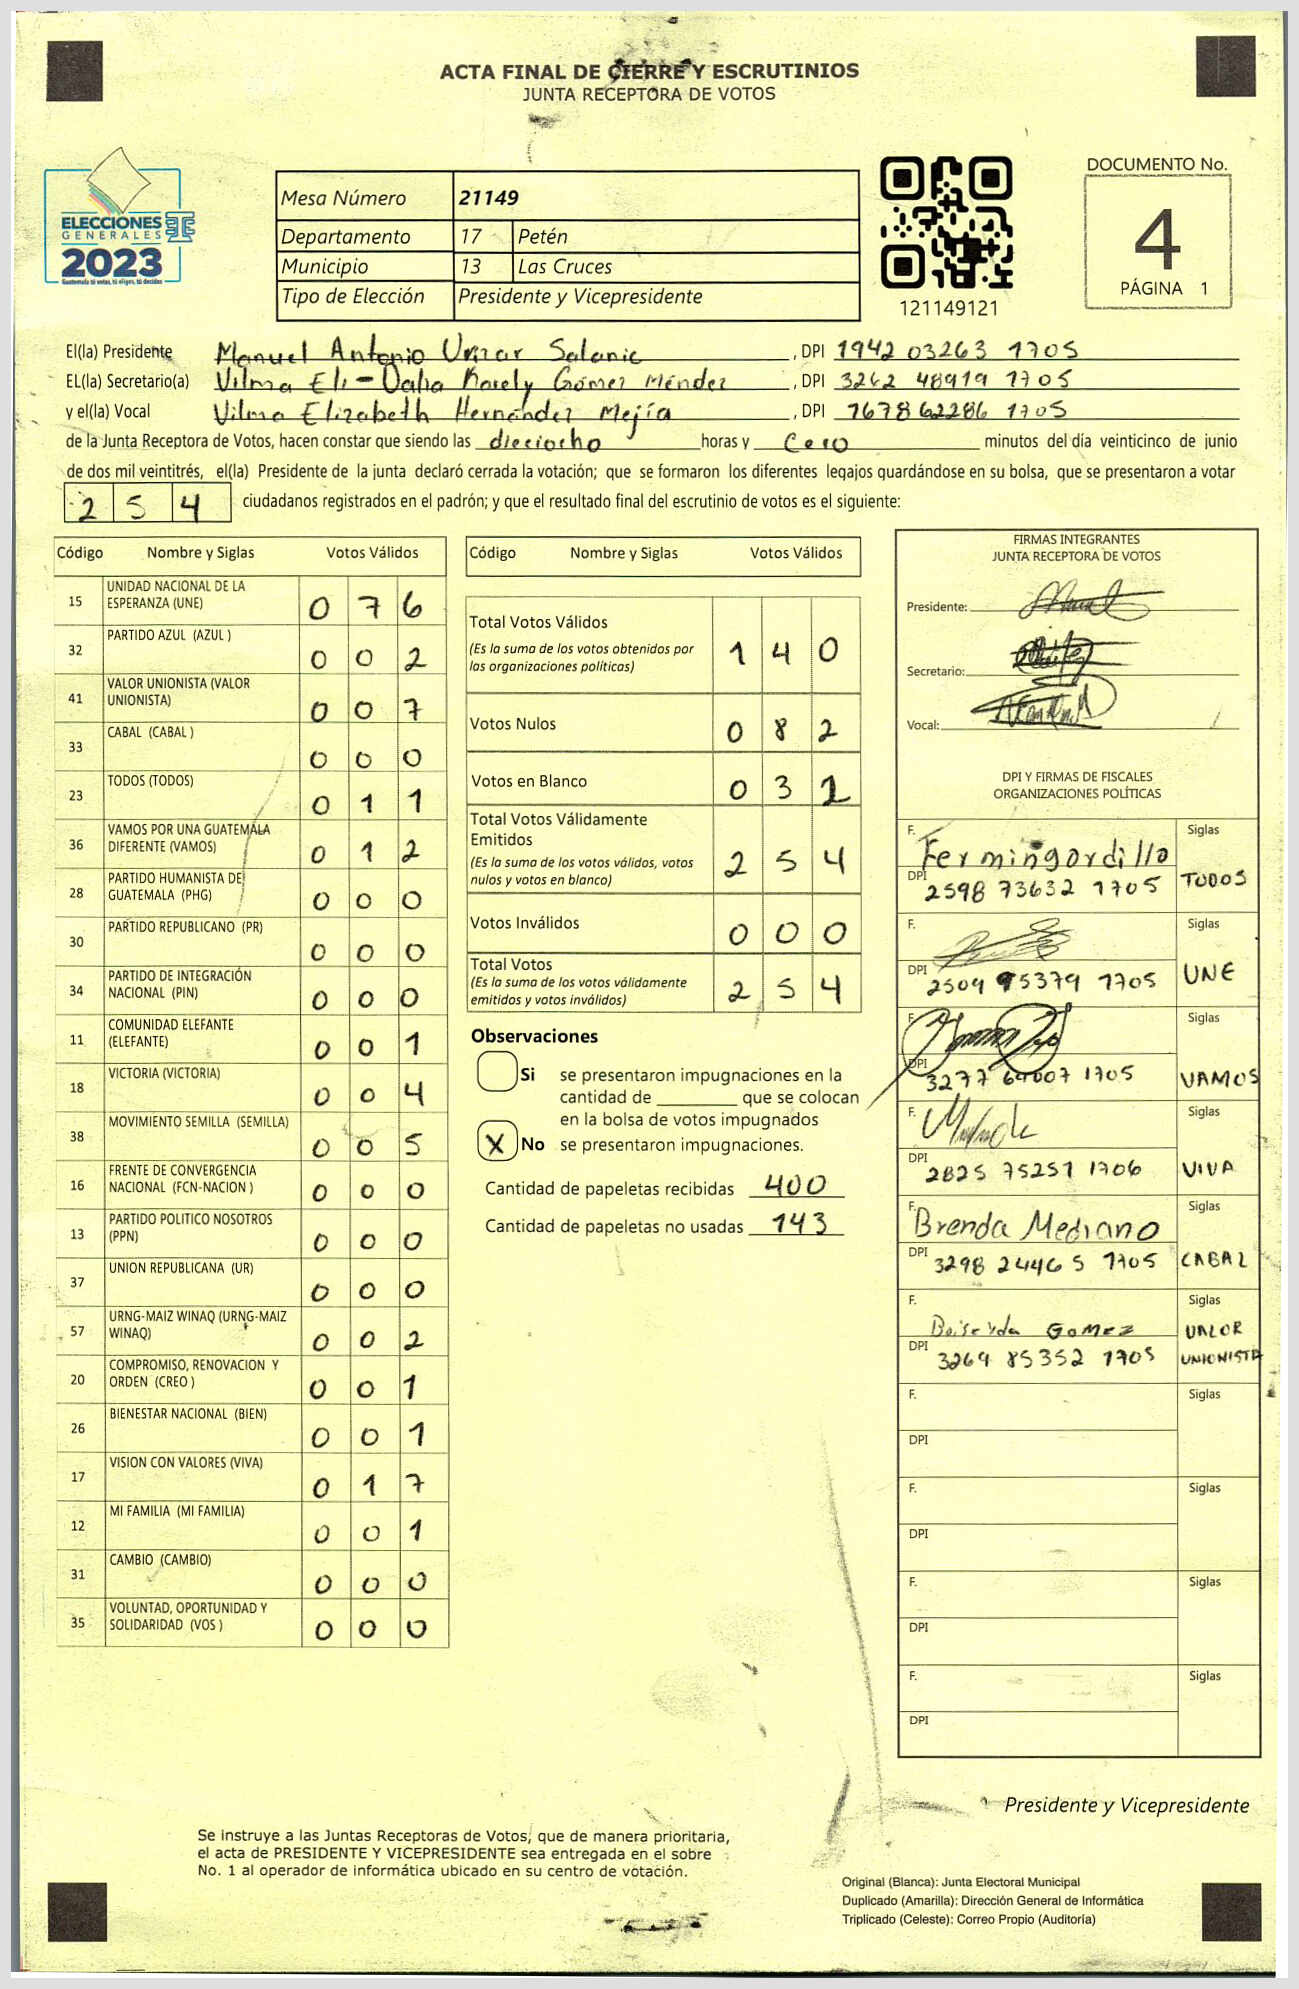 ACTA FINAL DE CIERRE Y ESCRUTINIOS
JUNTA RECEPTORA DE VOTOS
ELECCIONES
GENERALES
2023
Guatemala tú votas, tú eliges, tú decides
Mesa Número 21149
Departamento 17 Petén
Municipio 13 Las Cruces
Tipo de Elección Presidente y Vicepresidente
121149121
DOCUMENTO No.
4
PÁGINA 1
El(la) Presidente Manuel Antonio Urizar Salanic , DPI 1942 03263 1705
EL(la) Secretario(a) Vilma Eli-Dalia Karely Gómez Méndez , DPI 3262 48919 1705
y el(la) Vocal Vilma Elizabeth Hernández Mejía , DPI 7678 62286 1705
de la Junta Receptora de Votos, hacen constar que siendo las dieciocho horas y cero minutos del día veinticinco de junio
de dos mil veintitrés, el(la) Presidente de la junta declaró cerrada la votación; que se formaron los diferentes legajos quardándose en su bolsa, que se presentaron a votar
254 ciudadanos registrados en el padrón; y que el resultado final del escrutinio de votos es el siguiente:
Código Nombre y Siglas Votos Válidos
15 UNIDAD NACIONAL DE LA ESPERANZA (UNE) 076
32 PARTIDO AZUL (AZUL ) 002
41 VALOR UNIONISTA (VALOR UNIONISTA) 007
33 CABAL (CABAL ) 000
23 TODOS (TODOS) 011
36 VAMOS POR UNA GUATEMALA DIFERENTE (VAMOS) 012
28 PARTIDO HUMANISTA DE GUATEMALA (PHG) 000
30 PARTIDO REPUBLICANO (PR) 000
34 PARTIDO DE INTEGRACIÓN NACIONAL (PIN) 000
11 COMUNIDAD ELEFANTE (ELEFANTE) 001
18 VICTORIA (VICTORIA) 004
38 MOVIMIENTO SEMILLA (SEMILLA) 005
16 FRENTE DE CONVERGENCIA NACIONAL (FCN-NACION ) 000
13 PARTIDO POLITICO NOSOTROS (PPN) 000
37 UNION REPUBLICANA (UR) 000
57 URNG-MAIZ WINAQ (URNG-MAIZ WINAQ) 002
20 COMPROMISO, RENOVACION Y ORDEN (CREO ) 001
26 BIENESTAR NACIONAL (BIEN) 001
17 VISION CON VALORES (VIVA) 017
12 MI FAMILIA (MI FAMILIA) 001
31 CAMBIO (CAMBIO) 000
35 VOLUNTAD, OPORTUNIDAD Y SOLIDARIDAD (VOS ) 000
Código Nombre y Siglas Votos Válidos
Total Votos Válidos 140
(Es la suma de los votos obtenidos por
las organizaciones políticas)
Votos Nulos 082
Votos en Blanco 032
Total Votos Válidamente
Emitidos
(Es la suma de los votos válidos, votos
nulos y votos en blanco) 254
Votos Inválidos 000
Total Votos
(Es la suma de los votos válidamente
emitidos y votos inválidos) 254
Observaciones
Si se presentaron impugnaciones en la
cantidad de ________ que se colocan
en la bolsa de votos impugnados
X No se presentaron impugnaciones.
Cantidad de papeletas recibidas 400
Cantidad de papeletas no usadas 143
FIRMAS INTEGRANTES
JUNTA RECEPTORA DE VOTOS
Presidente:
Secretario:
Vocal:
DPI Y FIRMAS DE FISCALES
ORGANIZACIONES POLÍTICAS
F. Fermin gordillo Siglas
DPI 2598 73632 1705 TODOS
F. Siglas
DPI 2509 95379 1705 UNE
F. Siglas
DPI 3277 64007 1705 VAMOS
F. Siglas
DPI 2825 75251 1706 VIVA
F. Brenda Medrano Siglas
DPI 3298 24465 1705 CABAL
F. Gomez Siglas
DPI 3269 85352 1705 VALOR UNIONISTA
F. Siglas
DPI
F. Siglas
DPI
F. Siglas
DPI
F. Siglas
DPI
Presidente y Vicepresidente
Se instruye a las Juntas Receptoras de Votos, que de manera prioritaria,
el acta de PRESIDENTE Y VICEPRESIDENTE sea entregada en el sobre
No. 1 al operador de informática ubicado en su centro de votación.
Original (Blanca): Junta Electoral Municipal
Duplicado (Amarilla): Dirección General de Informática
Triplicado (Celeste): Correo Propio (Auditoría)